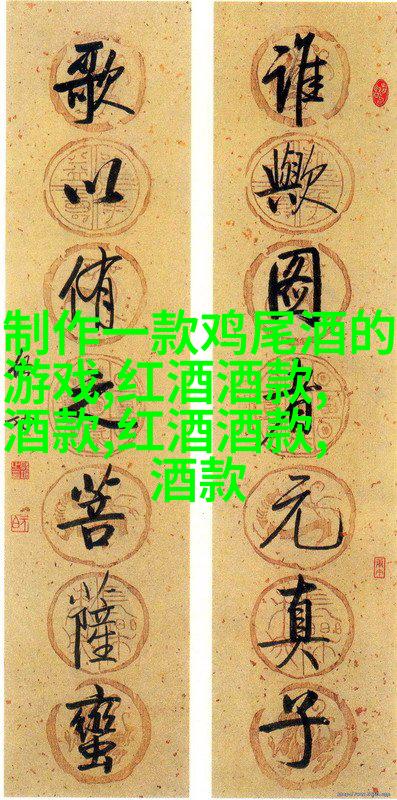 谁歟圖元真子
歌以侑之菩薩蠻
制作一款鸡尾酒的
游戏,红酒酒款,
酒款,红酒酒款,
酒款